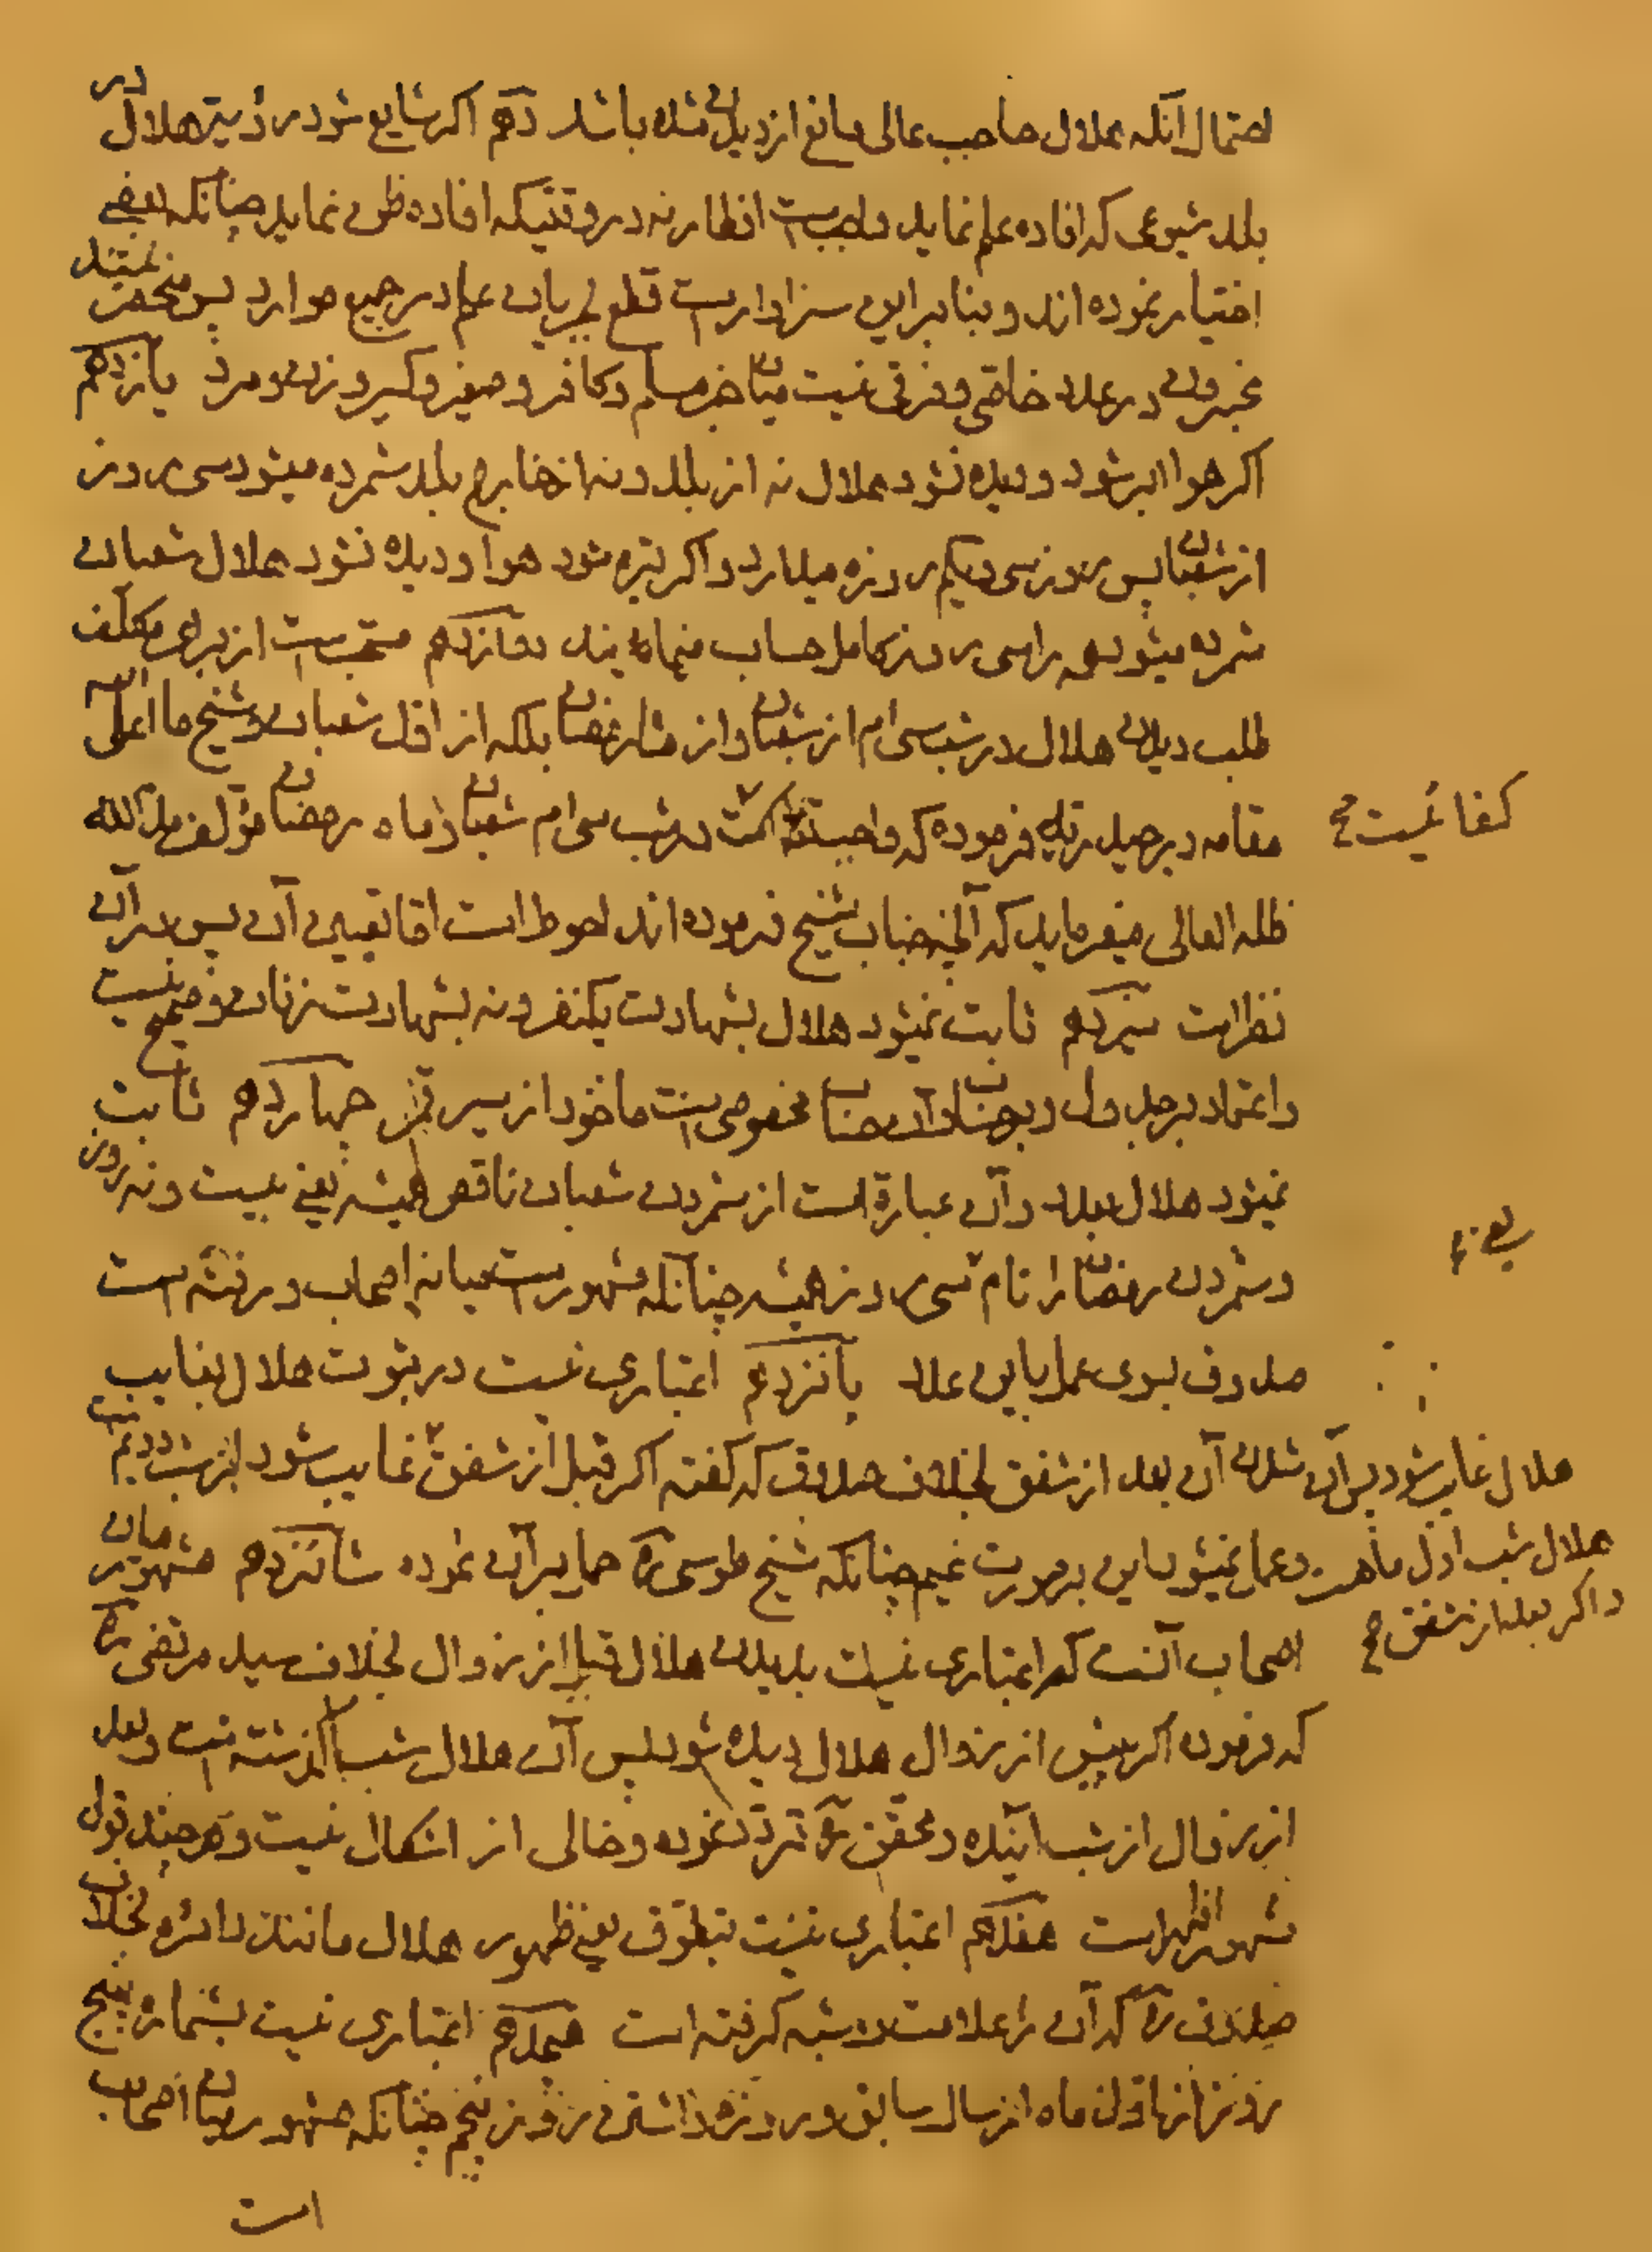 احتمال آنکه هلال صاحب عالی مانع از دیدن شده باشد دهم اگر شایع شود رؤیت هلال در
بلد شیوعی که افاده علم نماید واجبست افطار نه در وقتیکه افاده ظن نماید چنانکه بعضی
اختیار نموده اند و بنابراین سزاوار است قطع بجریان علم در جمیع موارد پس منحصر نیستند
مخبرون در عدد خاصی و فرقی نیست میان خبر مسلم و کافر و صغیر و کبیر و زن و مرد یازدهم
اکر هوا ابر شود و دیده نشود هلال نه از بلد و نه از خارج بلد شمرده میشود سی روز
از شعبان پس روز سی ویکم روزه میدارد و اکر تیره شود هوا و دیده نشود هلال شعبان
شمرده میشود همه را سی روز کامل حساب مینمایند دوازدهم مستحبست از برای مکلف
طلب دیدن هلال در شب سی ام از شعبان و از رمضان بلکه از اول شعبان و شیخ ما اعلی الله
مقامه در حیدریه فرموده که واجبست در شب سی ام شعبان و ماه رمضان مؤلف مد الله
کفائیست صح
ظله العالی میفرماید که آنچه جناب شیخ فرموده اند احوط است اما تعیین آن پس در آن
نظر است سیزدهم ثابت نمیشود هلال بشهادت یکنفر و نه بشهادت زنان و صحیح نیست
و اعتماد بر جدول و آن حساب مخصوصی است ماخوذ از سیر قمر چهاردهم ثابت
نمیشود هلال بعدد و آن عبارة است از شمردن شعبان ناقص همیشه یعنی بیست و نه روز
و شمردن رمضان را تام سی روز همیشه چنانکه مشهور است میانه اصحاب و رفته است
یعنی
صدوف بسوی عمل باین عدد پانزدهم اعتباری نیست در ثبوت هلال بغایب
هلال غایب شود پس آن شدن آن بعد از شفق بخلاف صدوق که گفته اکر قبل از شفق غایب شود از شب دویم نیست
هلال شب اول ماهست و عمل نمیشود باین در صورت غیم چنانکه شیخ طوسی ره حمل بر آن نموده شانزدهم مشهور میان
و اکر بعد از شفق صح
اصحاب آنست که اعتباری نیست بدیدن هلال قبل از زوال بخلاف سید مرتضی ره
که فرموده اکر پیش از زوال هلال دیده شود پس آن هلال شب گذشته است و بعد
از زوال از شب آینده و محقق ره تردد نموده و خالی از اشکال نیست و هر چند قول
مشهور اظهر است هفدهم اعتباری نیست بتطوق یعنی ظهور هلال مانند دائره بخلاف
صدوف ره که آن را علامت دو شبه گرفته است هیجدهم اعتباری نیست بشماره پنج
روز از اول ماه از سال سابق و روزه داشتن روز پنجم چنانکه مشهور میان اصحاب
است